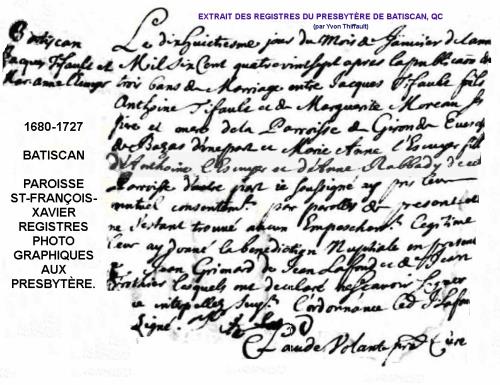 EXTRAIT DES REGISTRES DU PRESBYTÈRE DE BATISCAN, QC
(par Yvon Thiffault)
Batiscan
Jacques Tifault et
Mar. anne
1680-1727
BATISCAN
PAROISSE
ST-FRANÇOIS-
XAVIER
REGISTRES
PHOTO
GRAPHIQUES
AUX
PRESBYTÈRE.
Le dixhuictiesme jour du Mois de Janvier de
Mil Six Cent quatre vint sept apres la publication de
trois bans de Mariage entre Jacques Tifault fils
Anthoine Tifault et de Marguerite Moreau Ses
pere et mere de la Parroisse de Gironde
de Bazas d'une part et Marie Anne fille
d'Anthoine et d'Anne de
Parroisse d'autre part je soussigné ay pris leur
mutuel consentement par paroles de present et
ne s'estant trouvé aucun Empeschement Legitime
leur ay donné la benediction Nuptiale en presence
Jean Grimard de Jean Laffond et de Jean
lesquels ont declaré ne Scavoir Signer
de ce interpellez l'ordonnance
Signé
Claude Volant Curé